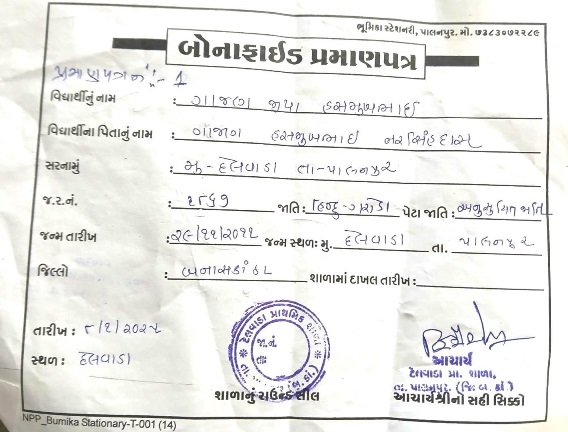 ભૂમિકા સ્ટેશનરી, પાલનપુર. મો. ૭૩૮૩૦૭૨૨૮૯
બોનાફાઈડ પ્રમાણપત્ર
પ્રમાણપત્ર નં :- 1
વિદ્યાર્થીનું નામ : ગાજણ જીયા હસમુખભાઈ
વિદ્યાર્થીના પિતાનું નામ : ગાજણ હસમુખભાઈ નરસિંહદાસ
સરનામું : મુ - હેલવાડા તા-પાલનપુર
જ.ર.નં. : ૧૮૬૭ જાતિ : હિન્દુ-ગરોડા પેટા જાતિ : અનુસુચિત જાતિ
જન્મ તારીખ : ૨૯/૧૧/૨૦૧૧ જન્મ સ્થળ: મુ. હેલવાડા તા. પાલનપુર
જિલ્લો : બનાસકાંઠા શાળામાં દાખલ તારીખ :
તારીખ : ૮/૧/૨૦૨૫
સ્થળ : હેલવાડા
પ્રાથમિક શાળા
જા.નં.
તા.
શાળાનું રાઉન્ડ સીલ
આચાર્ય
પ્રા. શાળા,
તા. પાલનપુર. (જિ. બ. કાં)
આચાર્યશ્રીનો સહી સિક્કો
NPP_Bumika Stationary-T-001 (14)